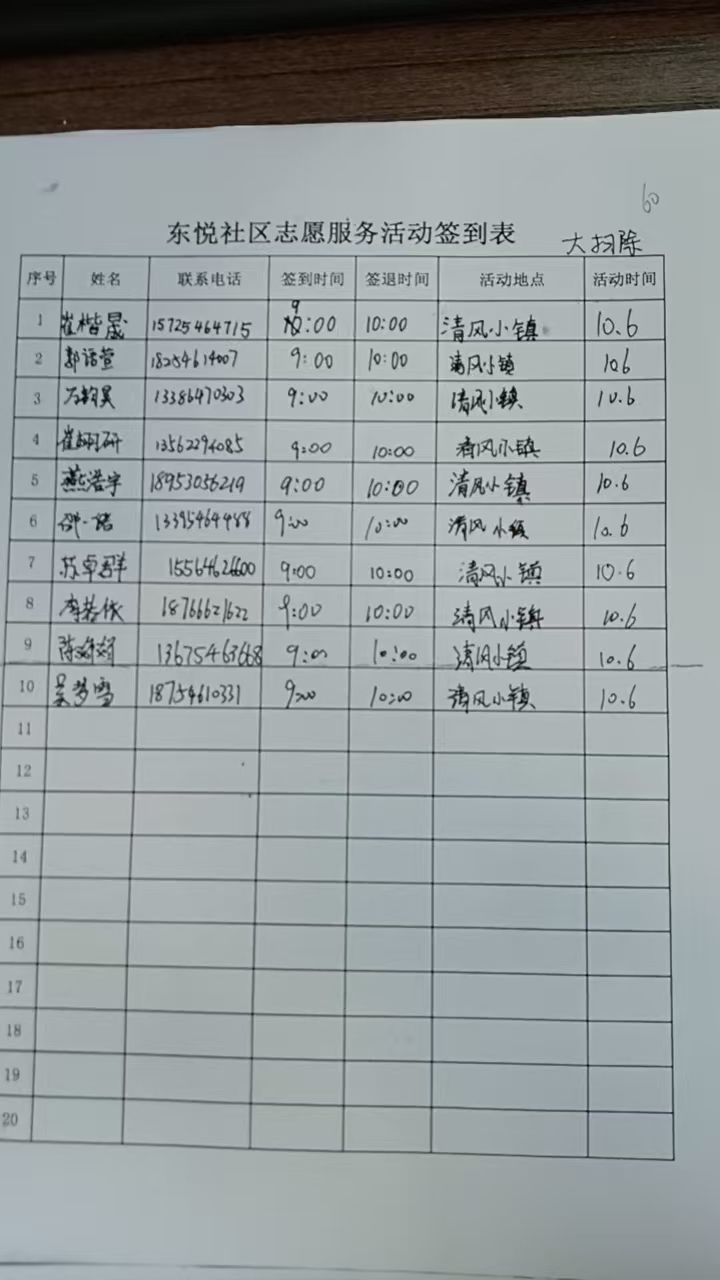 60
东悦社区志愿服务活动签到表 大扫除
序号 姓名 联系电话 签到时间 签退时间 活动地点 活动时间
1 崔楷晟 15725464715 9:00 10:00 清风小镇 10.6
2 郭语萱 18254614007 9:00 10:00 清风小镇 10.6
3 13386470303 9:00 10:00 清风小镇 10.6
4 13562294085 9:00 10:00 清风小镇 10.6
5 燕浩宇 18953056219 9:00 10:00 清风小镇 10.6
6 13395464488 9:00 10:00 清风小镇 10.6
7 苏卓群 15564626600 9:00 10:00 清风小镇 10.6
8 李若依 18766621622 9:00 10:00 清风小镇 10.6
9 13675463668 9:00 10:00 清风小镇 10.6
10 吴梦雪 18754610331 9:00 10:00 清风小镇 10.6
11
12
13
14
15
16
17
18
19
20